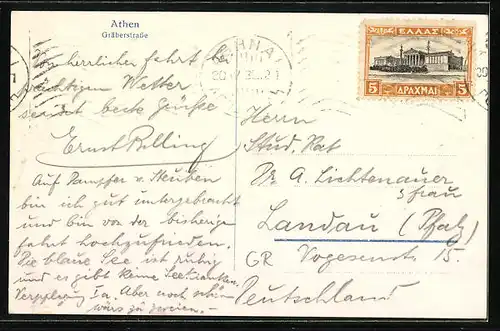 Athen
Gräberstraße
Von herrlicher Fahrt bei
prächtigen Wetter
sendet beste Grüße
Ernst Rolling
Auf Dampfer v. Steuben
bin ich gut untergebracht
und bin von der bisherige
Fahrt hochzufrieden.
Die blaue See ist ruhig
und es gibt keine Seekranken.
Verpflegung Ia. Aber noch
ΕΛΛΑΣ
5 ΔΡΑΧΜΑΙ 5
Herrn
Stud. Rat
Dr. A. Lichtenauer
Frau
Landau (Pfalz)
Vogesenstr. 15.
GR
Deutschland